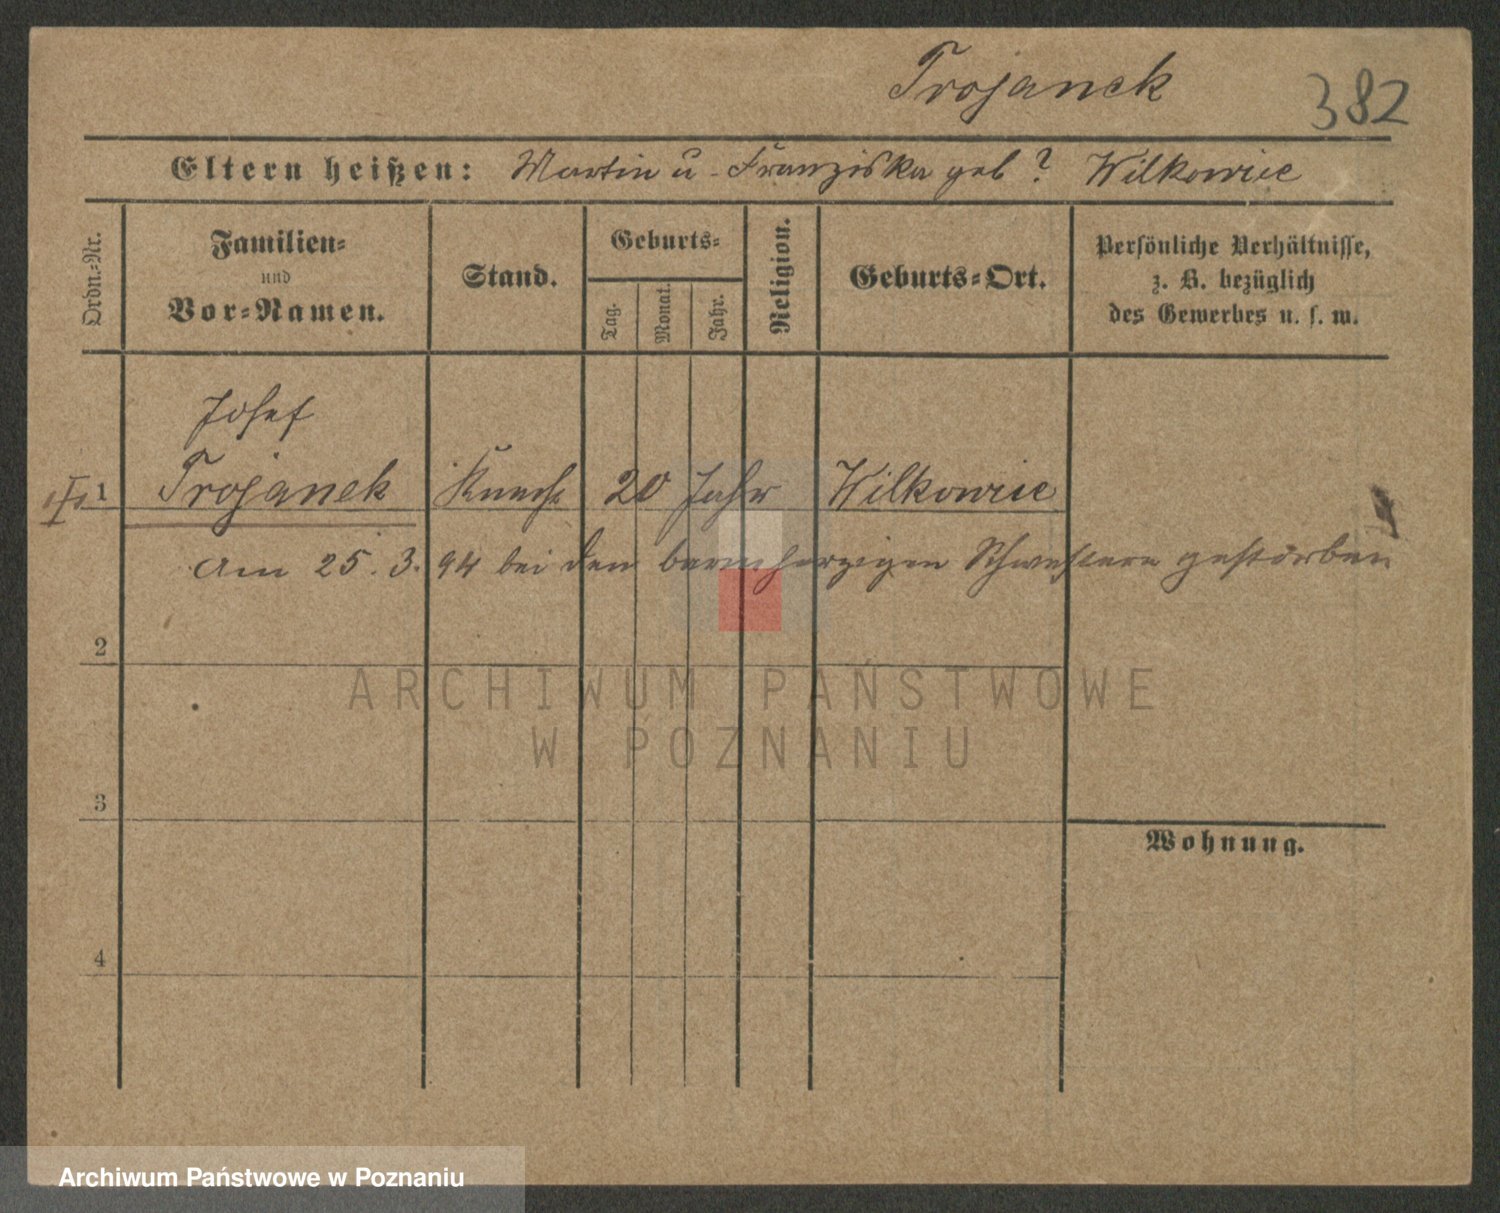 Trojanek 382
Eltern heißen: Martin u. Franziska geb? Wilkowice
Ordn.-Nr.
Familien-
und
Vor-Namen.
Stand.
Geburts-
Tag.
Monat.
Jahr.
Religion.
Geburts-Ort.
Persönliche Verhältnisse,
z. B. bezüglich
des Gewerbes u. s. w.
Josef
1 Trojanek Knecht 20 Jahr Wilkowice
Am 25.3.94 bei den barmherzigen Schwestern gestorben
2
3
Wohnung.
4
ARCHIWUM PAŃSTWOWE
W POZNANIU
Archiwum Państwowe w Poznaniu